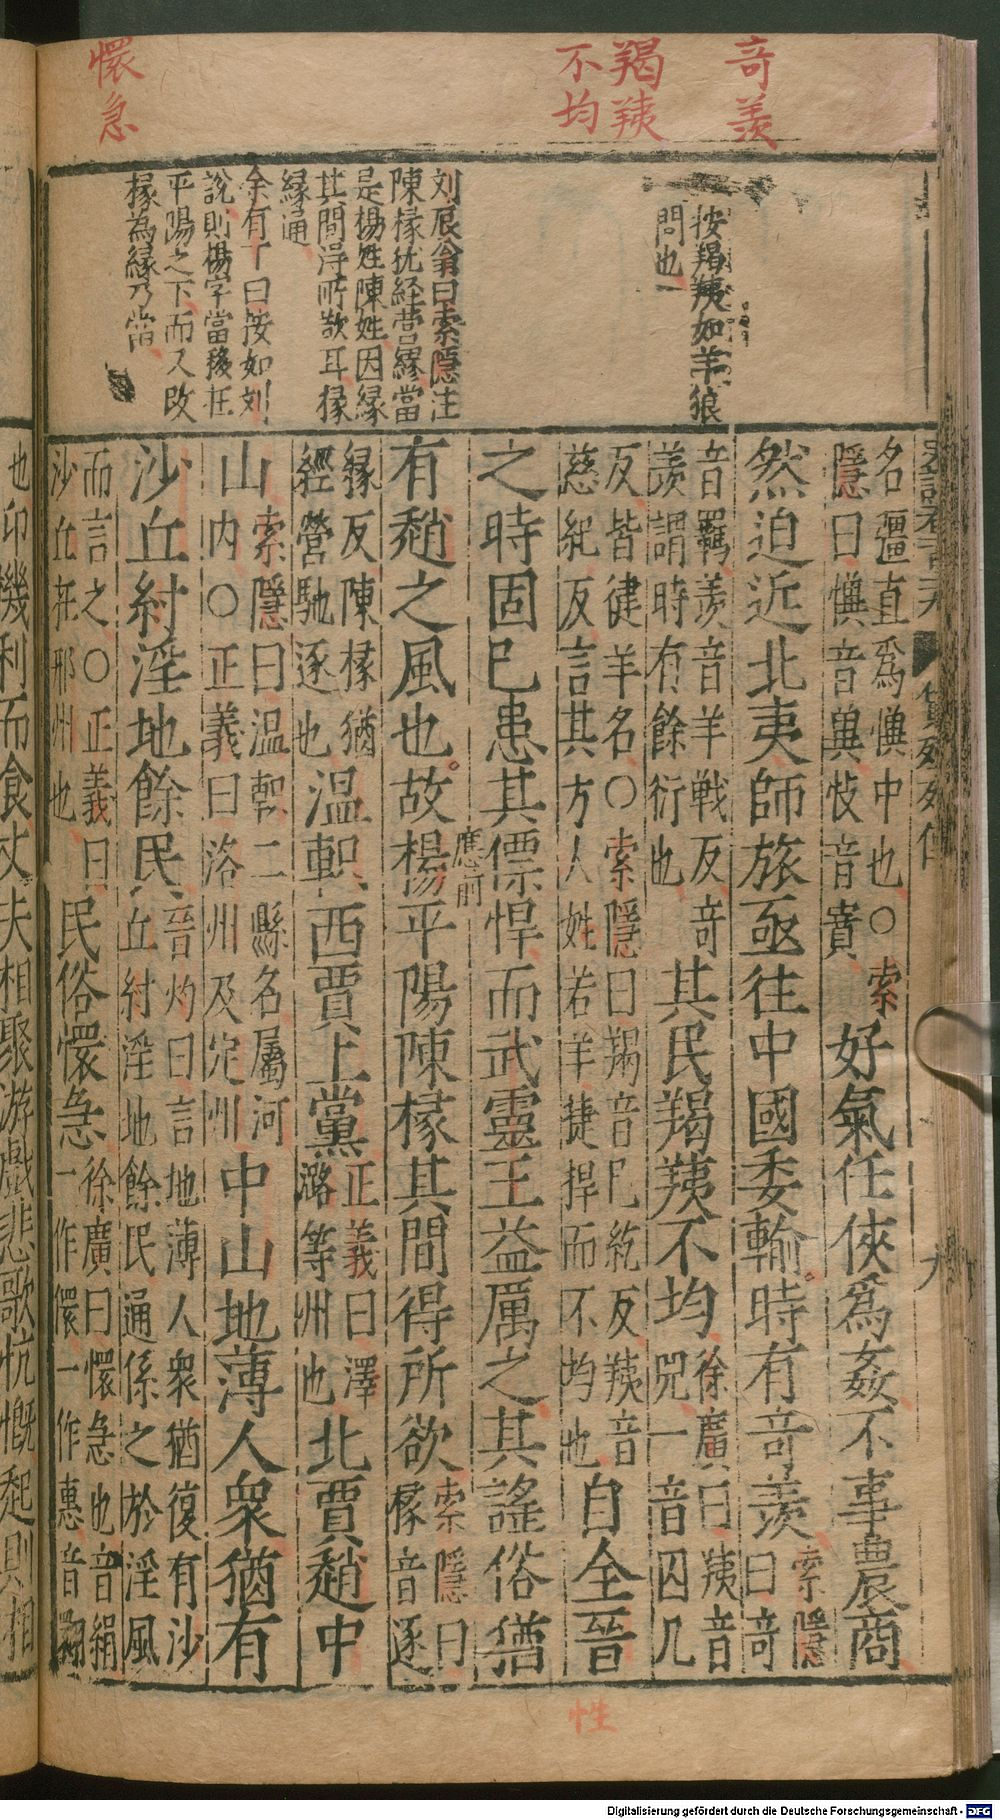 奇羡
羯羠
不均
懷急
按羯羠如羊狼
問也
刘辰翁曰索隱注
陳椽抚経营繆當
是楊姓陳姓因緣
其間淂所欲耳椽
縁通
余有丁曰按如刘
說則楊字當移在
平陽之下而又改
椽為縁乃當
名彊直爲懻中也○索
隱曰懻音兾忮音賁
好氣任俠爲姦不事農商
然迫近北夷師旅亟往中國委輸時有竒羡
索隱
曰竒
音羈羡音羊戦反竒
羡謂時有餘衍也
其民羯羠不均
徐廣曰羠音
兕一音囚几
反皆徤羊名○索隱曰羯音己紇反羠音
慈紀反言其方人姓若羊揵捍而不均也
自全晉
之時固已患其僄悍而武靈王益厲之其謠俗猶
有趙之風也故楊平陽陳椽其間得所欲
應前
索隱曰
椽音逐
緣反陳椽猶
經營馳逐也
温軹西賈上黨
正義曰澤
潞等州也
北賈趙中
山
索隱曰温軹二縣名屬河
内○正義曰洛州及定州
中山地薄人衆猶有
沙丘紂淫地餘民
晉灼曰言地薄人衆猶復有沙
丘紂淫地餘民通係之於淫風
而言之○正義曰
沙丘在邢州也
民俗懷急
徐廣曰懷急也音絹
一作儇一作惠音翾
也卬機利而食丈夫相聚游戲悲歌忼慨起則相
貨殖列傳
九
性
Digitalisierung gefördert durch die Deutsche Forschungsgemeinschaft - DFG